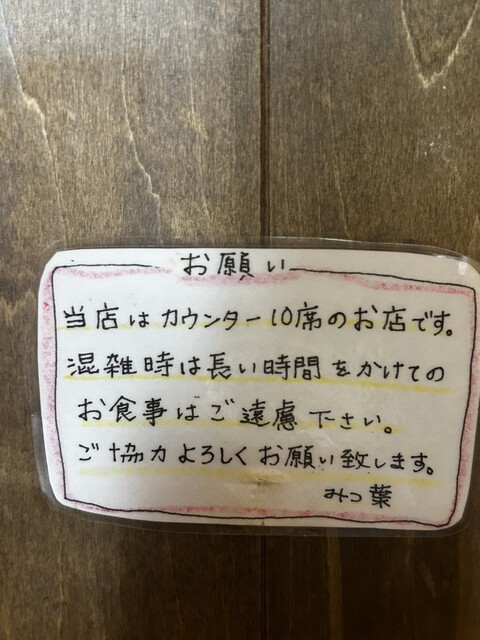 お願い
当店はカウンター10席のお店です。
混雑時は長い時間をかけての
お食事はご遠慮下さい。
ご協力よろしくお願い致します。
みつ葉